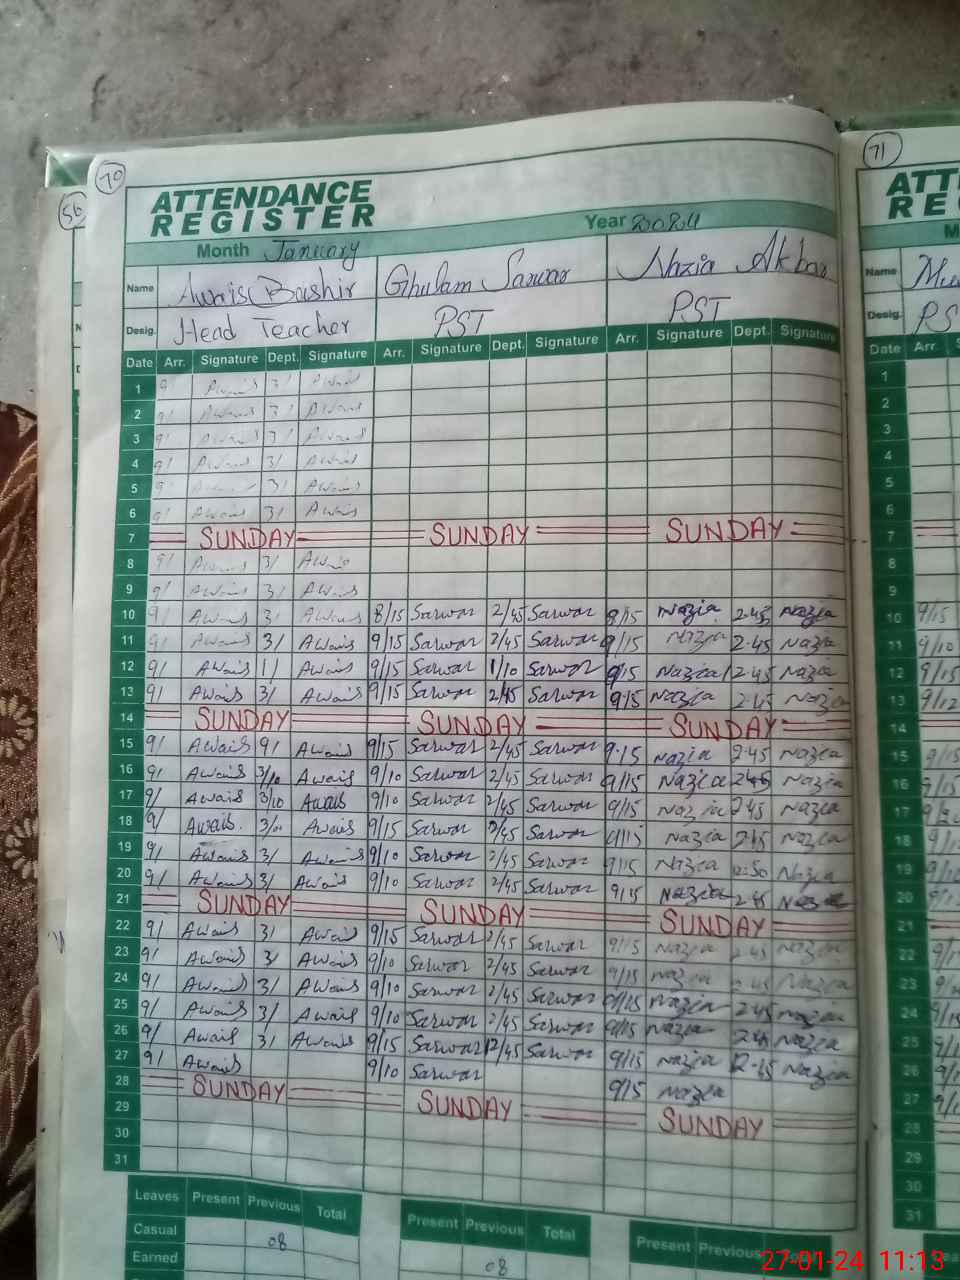 70
71
56
ATTENDANCE
REGISTER
ATT
RE
Month January
Year 2024
Name Awais Bashir Ghulam Sarwar Nazia Akbar
Name
Desig. Head Teacher PST PST
Desig. PS
Date Arr. Signature Dept. Signature Arr. Signature Dept. Signature Arr. Signature Dept. Signature
Date Arr.
1 9/ Awais 3/ Awais
2 9/ Awais 3/ Awais
3 9/ Awais 3/ Awais
4 9/ Awais 3/ Awais
5 9/ Awais 3/ Awais
6 9/ Awais 3/ Awais
7 SUNDAY SUNDAY SUNDAY
8 9/ Awais 3/ Awais
9 9/ Awais 3/ Awais
10 9/ Awais 3/ Awais 8/15 Sarwar 2/45 Sarwar 8/15 Nazia 2.45 Nazia
11 9/ Awais 3/ Awais 9/15 Sarwar 2/45 Sarwar 9/15 Nazia 2.45 Nazia
12 9/ Awais 1/ Awais 9/15 Sarwar 1/10 Sarwar 9/15 Nazia 2.45 Nazia
13 9/ Awais 3/ Awais 9/15 Sarwar 2/45 Sarwar 9.15 Nazia 2.45 Nazia
14 SUNDAY SUNDAY SUNDAY
15 9/ Awais 9/ Awais 9/15 Sarwar 2/45 Sarwar 9.15 Nazia 2.45 Nazia
16 9/ Awais 3/10 Awais 9/10 Sarwar 2/45 Sarwar 9/15 Nazia 2.45 Nazia
17 9/ Awais 3/10 Awais 9/10 Sarwar 2/45 Sarwar 9/15 Nazia 2.45 Nazia
18 9/ Awais. Awais 9/15 Sarwar 2/45 Sarwar 9/15 Nazia Nazia
19 9/ Awais 3/ Awais 9/10 Sarwar 2/45 Sarwar 9/15 Nazia 12:50 Nazia
20 9/ Awais 3/ Awais 9/10 Sarwar 2/45 Sarwar 9/15 Nazia 2.45 Nazia
21 SUNDAY SUNDAY SUNDAY
22 9/ Awais 3/ Awais 9/15 Sarwar 2/45 Sarwar 9/15 Nazia 2.45 Nazia
23 9/ Awais 3/ Awais 9/10 Sarwar 2/45 Sarwar 9/15 Nazia Nazia
24 9/ Awais 3/ Awais 9/10 Sarwar 2/45 Sarwar 9/15 Nazia 2.45 Nazia
25 9/ Awais 3/ Awais 9/10 Sarwar 2/45 Sarwar 9/15 Nazia 2.45 Nazia
26 9/ Awais 3/ Awais 9/15 Sarwar 12/45 Sarwar 9/15 Nazia 12.45 Nazia
27 9/ Awais 9/10 Sarwar 9/15 Nazia
28 SUNDAY SUNDAY SUNDAY
29
30
31
Leaves Present Previous Total Present Previous Total Present Previous
Casual 08 08
Earned
27-01-24 11:13